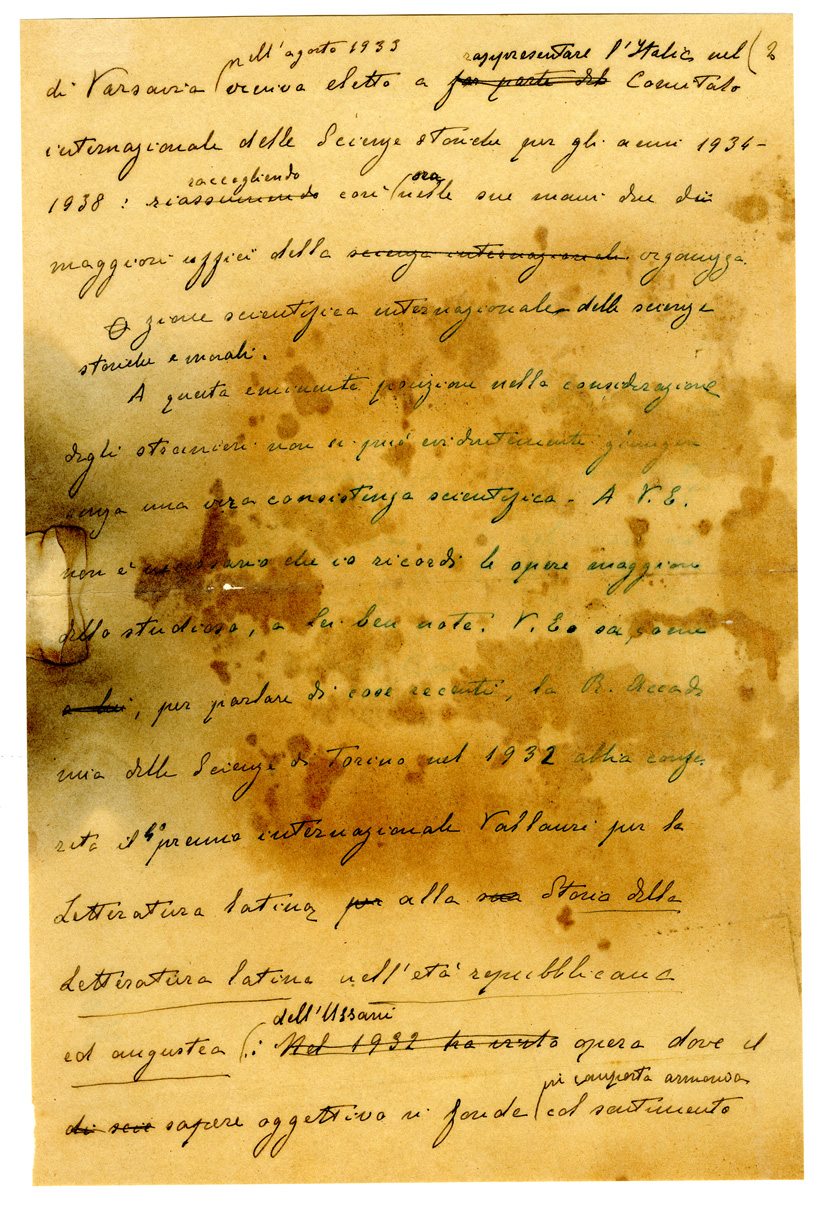 nell'agosto 1933 rappresentare l'Italia nel (2
di Varsavia (veniva eletto a far parte del Comitato
internazionale delle Scienze storiche per gli anni 1934-
raccogliendo ora
1938 : riassumendo così (nelle sue mani due dei
maggiori uffici della scienza internazionale organizza
zione scientifica internazionale delle scienze
storiche e morali.
A questa eminente posizione nella considerazione
degli stranieri non si può evidentemente giungere
senza una vera consistenza scientifica - A V.E.
non è necessario che io ricordi le opere maggiori
dello studioso, a Lei ben note. V.E. sa come
a lui, per parlare di cose recenti, la R. Accade
mia delle Scienze di Torino nel 1932 abbia confe
rito il premio internazionale Vallauri per la
Letteratura latina per alla sua Storia della
Letteratura latina nell'età repubblicana
dell'Ussani
ed augustea (: Nel 1932 ha vinto opera dove il
in composta armonia
di suo sapere oggettivo si fonde (col sentimento